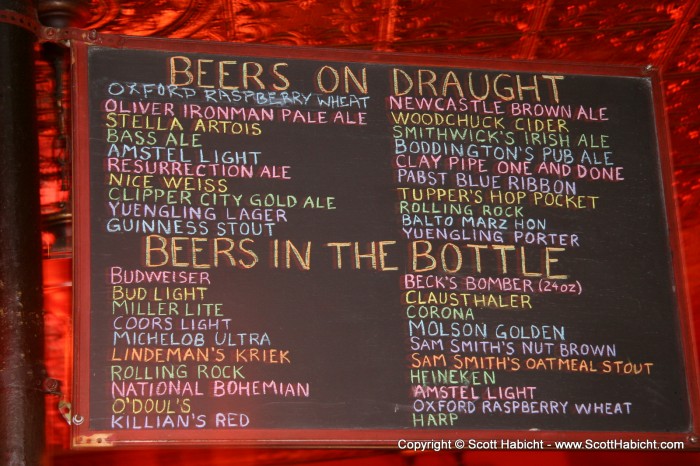 BEERS ON DRAUGHT
OXFORD RASPBERRY WHEAT
OLIVER IRONMAN PALE ALE
STELLA ARTOIS
BASS ALE
AMSTEL LIGHT
RESURRECTION ALE
NICE WEISS
CLIPPER CITY GOLD ALE
YUENGLING LAGER
GUINNESS STOUT
NEWCASTLE BROWN ALE
WOODCHUCK CIDER
SMITHWICK'S IRISH ALE
BODDINGTON'S PUB ALE
CLAY PIPE ONE AND DONE
PABST BLUE RIBBON
TUPPER'S HOP POCKET
ROLLING ROCK
BALTO MARZ HON
YUENGLING PORTER
BEERS IN THE BOTTLE
BUDWEISER
BUD LIGHT
MILLER LITE
COORS LIGHT
MICHELOB ULTRA
LINDEMAN'S KRIEK
ROLLING ROCK
NATIONAL BOHEMIAN
O'DOUL'S
KILLIAN'S RED
BECK'S BOMBER (24oz)
CLAUSTHALER
CORONA
MOLSON GOLDEN
SAM SMITH'S NUT BROWN
SAM SMITH'S OATMEAL STOUT
HEINEKEN
AMSTEL LIGHT
OXFORD RASPBERRY WHEAT
HARP
Copyright © Scott Habicht - www.ScottHabicht.com